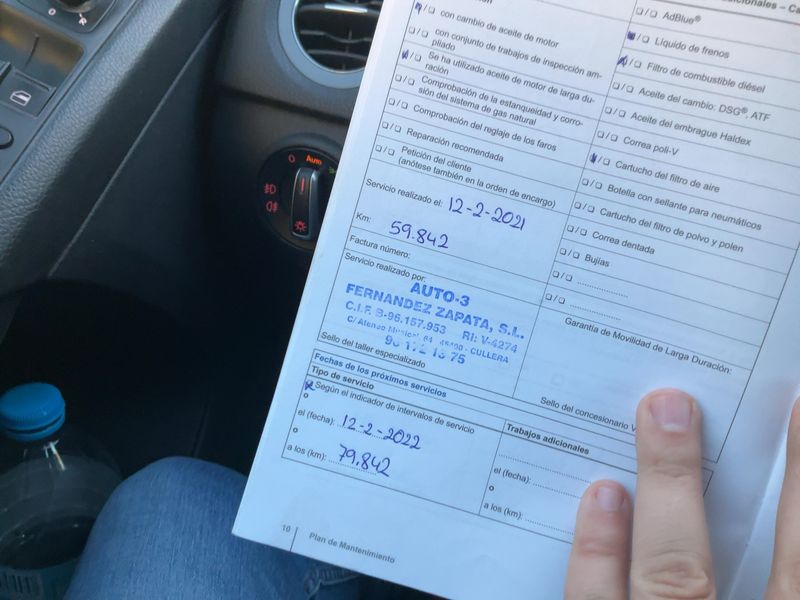 Auto
❏ / ❏ con cambio de aceite de motor
❏ / ❏ con conjunto de trabajos de inspección am-
pliado
❏ / ❏ Se ha utilizado aceite de motor de larga du-
ración
❏ / ❏ Comprobación de la estanqueidad y corro-
sión del sistema de gas natural
❏ / ❏ Comprobación del reglaje de los faros
❏ / ❏ Reparación recomendada
❏ / ❏ Petición del cliente
(anótese también en la orden de encargo)
Servicio realizado el: 12-2-2021
Km: 59.842
Factura número:
Servicio realizado por:
AUTO-3
FERNANDEZ ZAPATA, S.L.
C.I.F. B-96.157.953 RI: V-4274
CULLERA
Sello del taller especializado
❏ / ❏ AdBlue®
❏ / ❏ Líquido de frenos
❏ / ❏ Filtro de combustible diésel
❏ / ❏ Aceite del cambio: DSG®, ATF
❏ / ❏ Aceite del embrague Haldex
❏ / ❏ Correa poli-V
❏ / ❏ Cartucho del filtro de aire
❏ / ❏ Botella con sellante para neumáticos
❏ / ❏ Cartucho del filtro de polvo y polen
❏ / ❏ Correa dentada
❏ / ❏ Bujías
❏ / ❏ ....................
❏ / ❏ ....................
Garantía de Movilidad de Larga Duración:
Sello del concesionario
Fechas de los próximos servicios
Tipo de servicio
Según el indicador de intervalos de servicio
o
el (fecha): 12-2-2022
o
a los (km): 79.842
Trabajos adicionales
el (fecha):
o
a los (km):
10
Plan de Mantenimiento